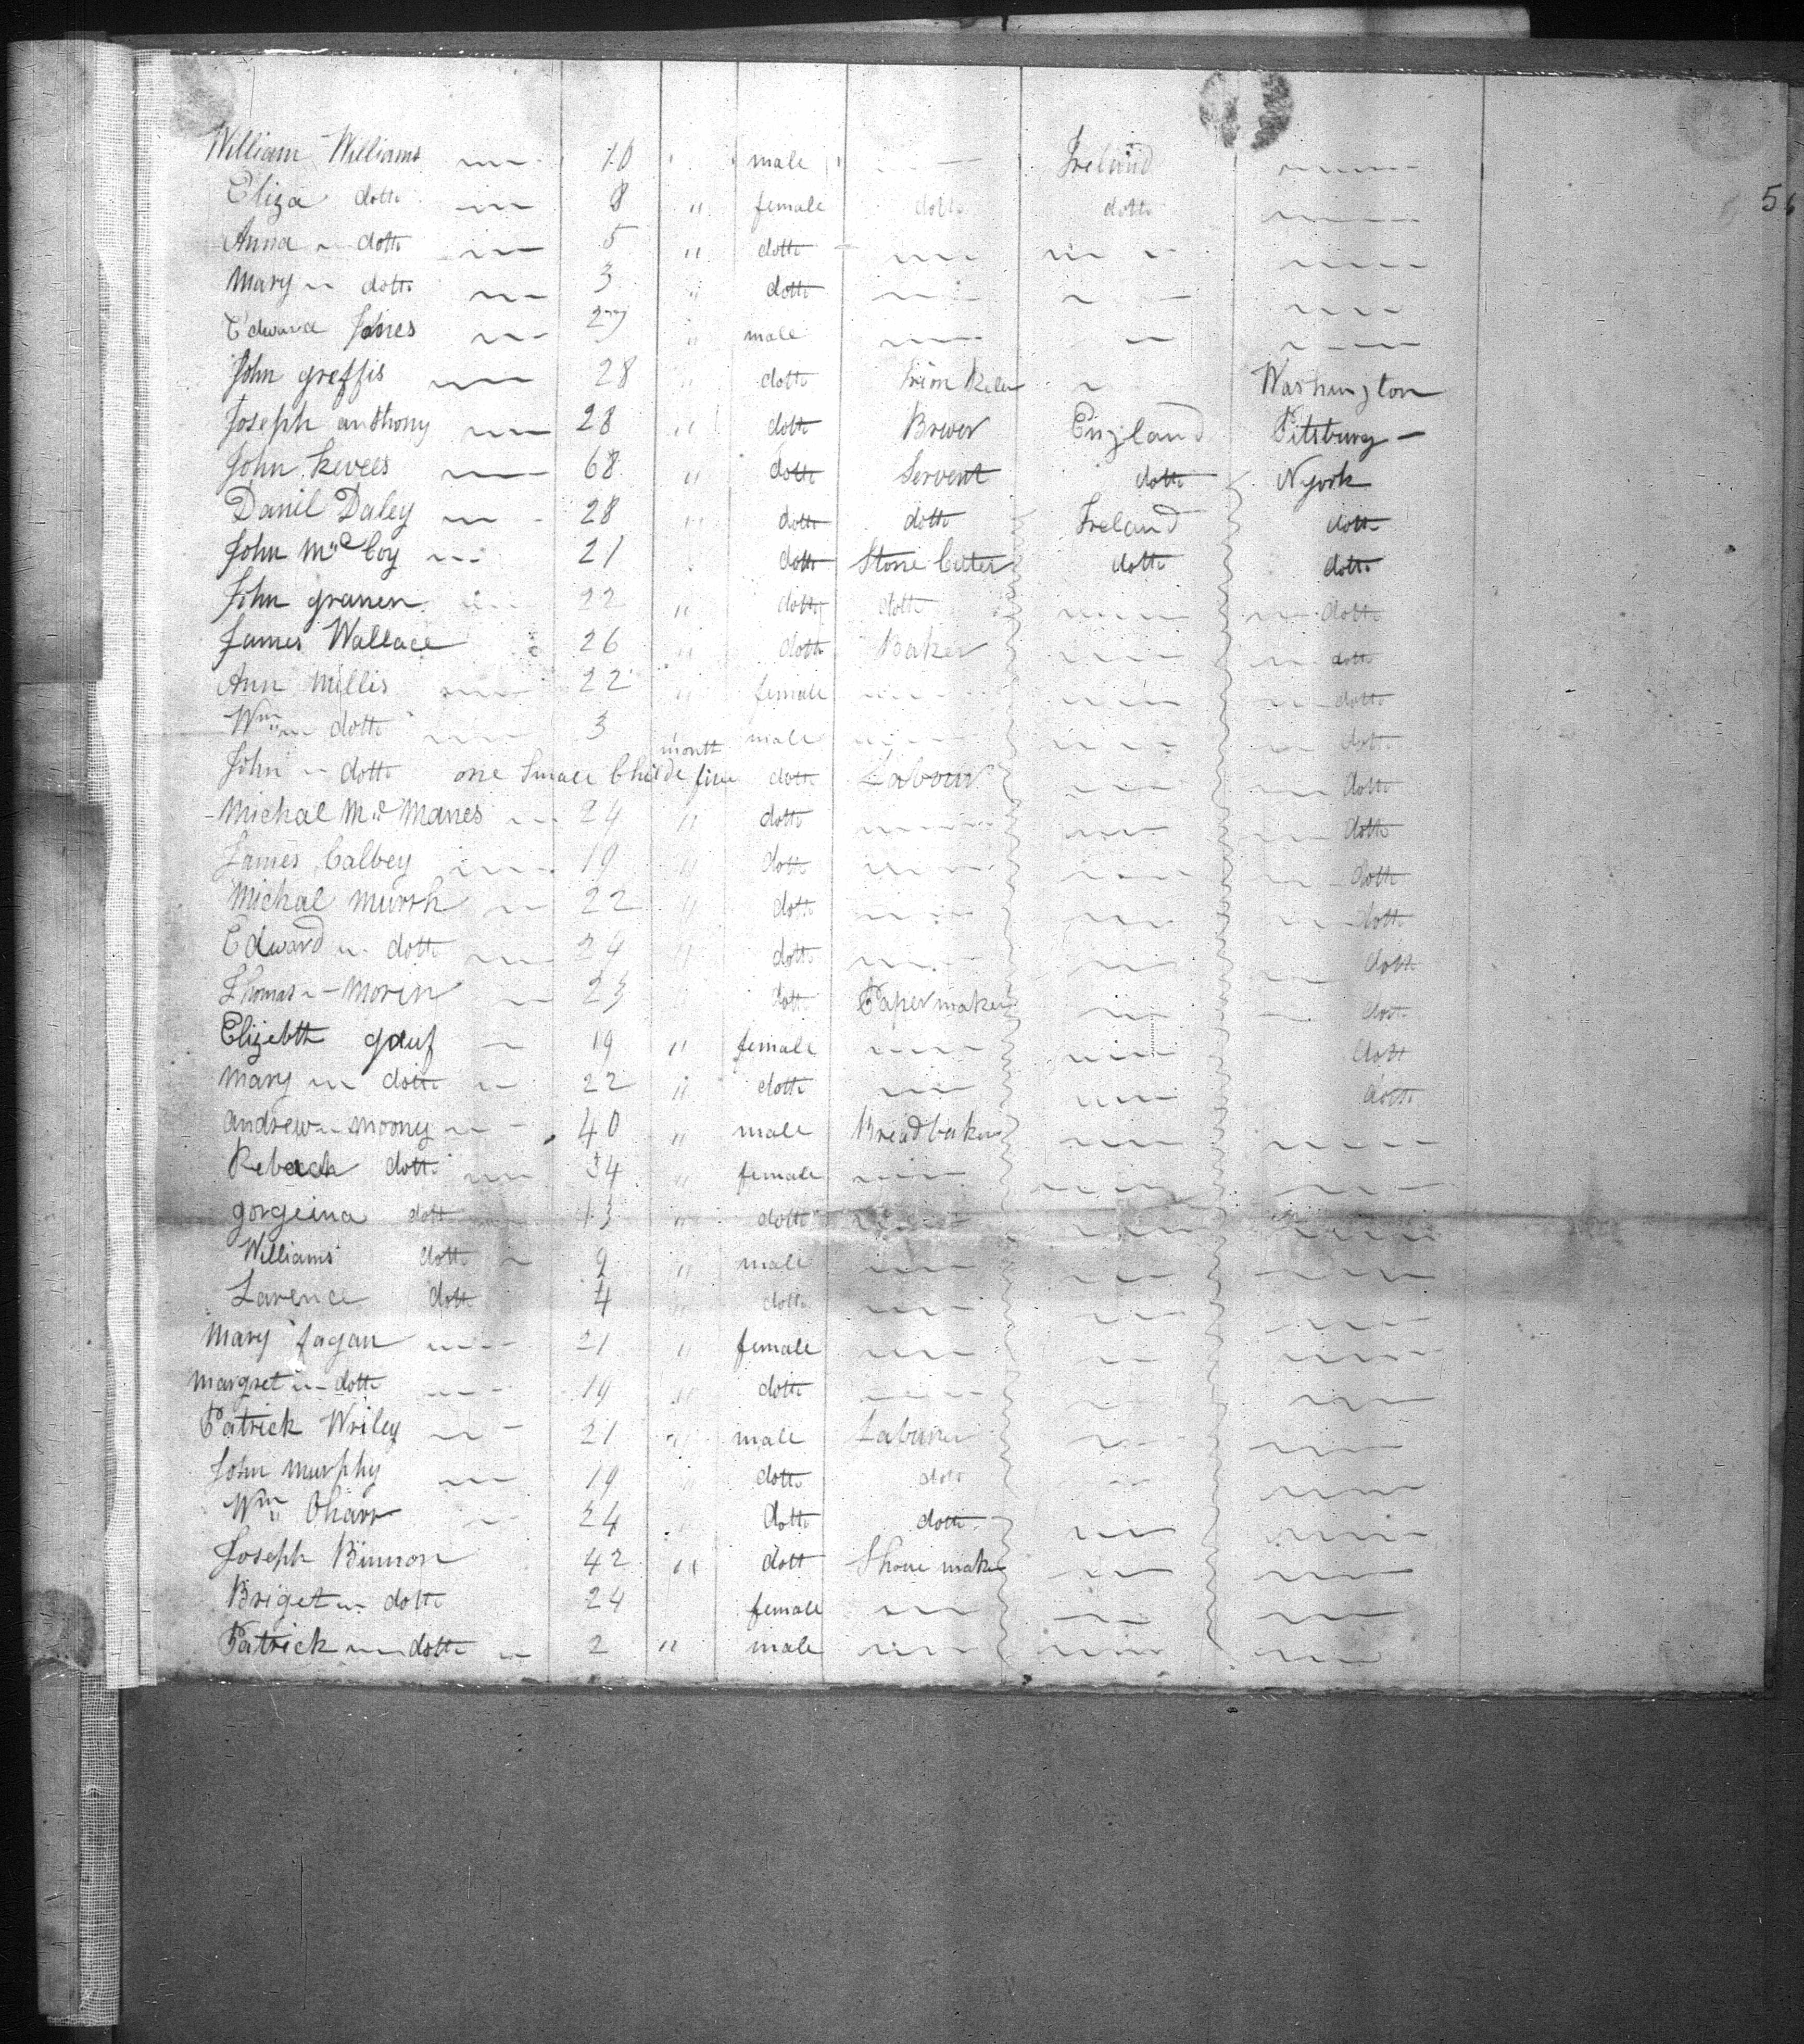 William Williams 10 male Ireland
56
Eliza dotto 8 " female dotto dotto
Anna dotto 5 " dotto
Mary dotto 3 " dotto
Edward Jones 27 " male
John greffis 28 " dotto Washington
Joseph anthony 28 " dotto Brewer England Pitsburg
John 68 " dotto Servent dotto N york
Danil Daley 28 " dotto dotto Ireland dotto
John Mc Coy 21 dotto Stone Cutter dotto dotto
John granen 22 " dotto dotto dotto
James Wallace 26 " dotto Baker dotto
Ann Millis 22 " female dotto
Wm dotto 3 male dotto
month
John dotto one Small Childe five dotto Labour dotto
Michal Mc Manes 24 " dotto dotto
James Calbey 19 " dotto dotto
Michal murrh 22 " dotto dotto
Edward dotto 24 " dotto dotto
Thomas Morin 23 dotto Paper maker dotto
Elizebth gauf 19 " female dotto
Mary dotto 22 " dotto dotto
andrew moony 40 " male Bread baker
Reback dotto 34 " female
gorgeina dotto 13 " dotto
Williams dotto 9 " male
Larence dotto 4 " dotto
Mary fagan 21 " female
Margret dotto 19 " dotto
Patrick Wriley 21 " male Laburer
John Murphy 19 " dotto dotto
Wm Oharr 24 " dotto dotto
Joseph Binnon 42 " dotto Shoue maker
Briget dotto 24 female
Patrick dotto 2 " male